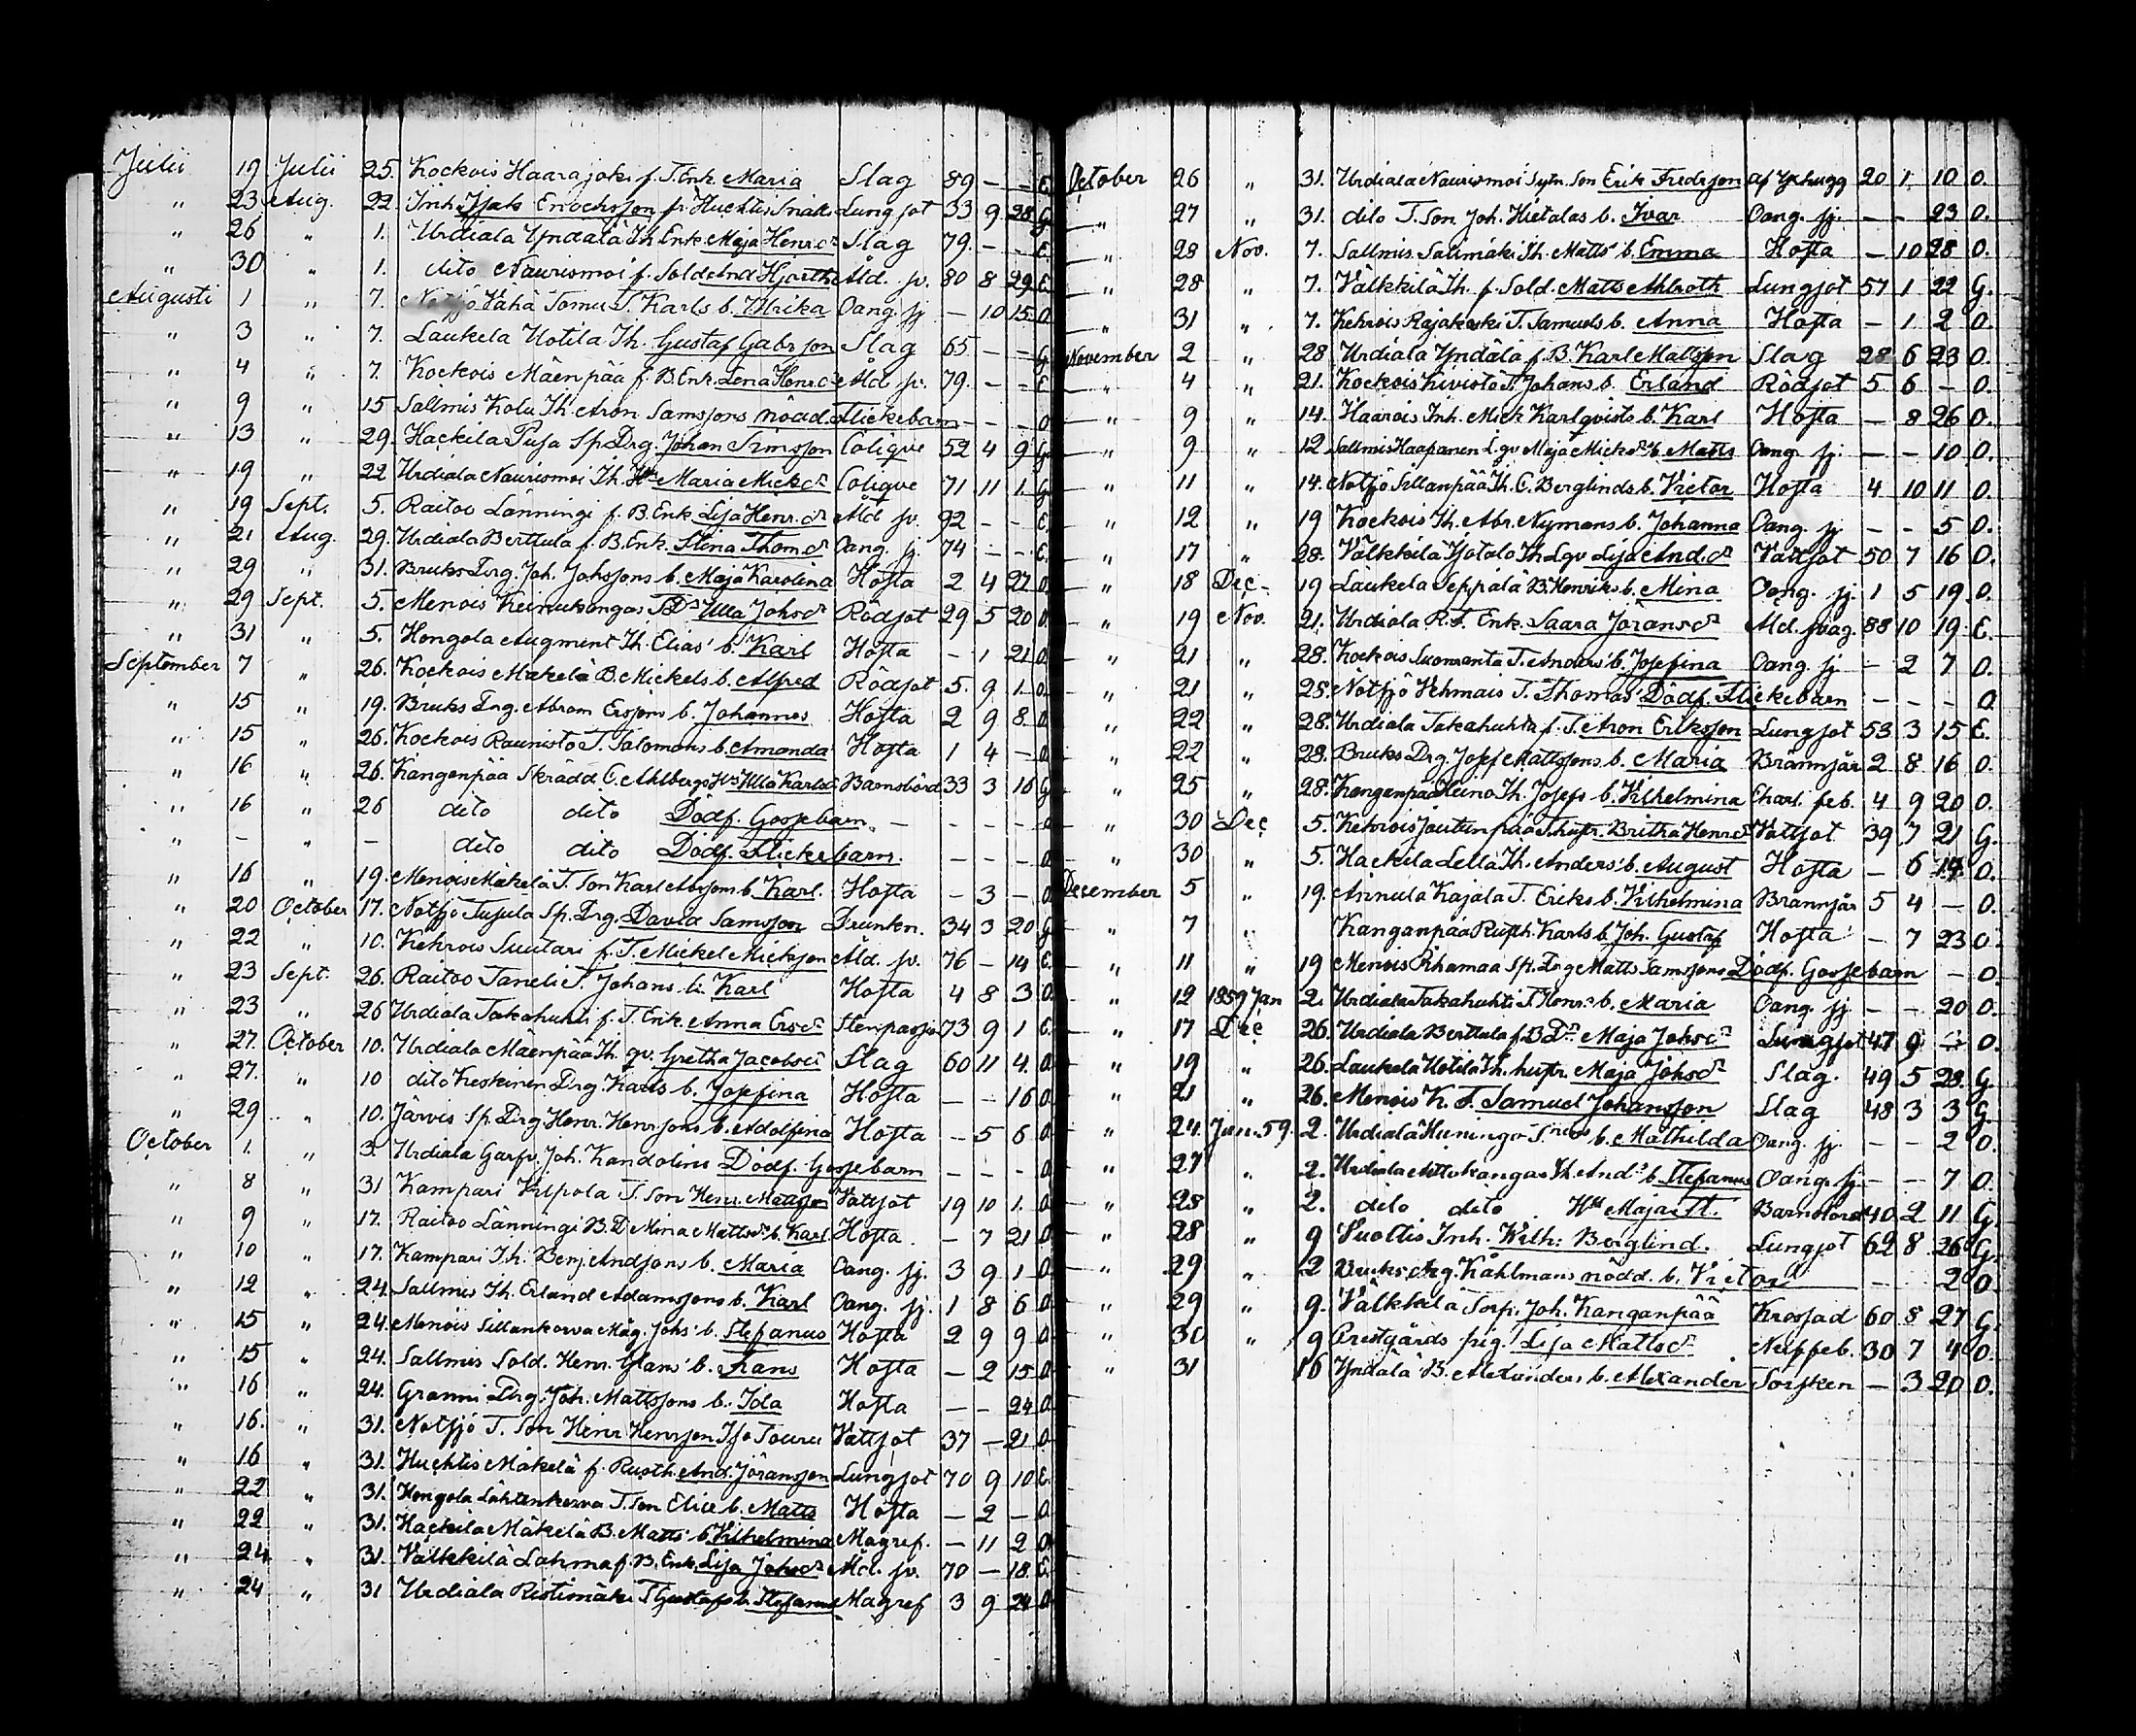 Julii 19 Julii 25. Kockois Haarajoki f. T. Enk. Maria Slag 89 — — E.
" 23 Aug. 22. Inh. Isak Enochsson fr. Huchtis Lung sot 33 9 28 G.
" 26 " 1. Urdiala Yndälä Th. Enk. Maja Henr.dr Slag 79. — — E.
" 30 " 1. dito Naurismoi f. Sold. And. Hjorth Åld. sv. 80 8 29 E.
Augusti 1 " 7. Notsjö Vähä Tomu T. Karls b. Ulrika Oang. sj — 10 15 O.
" 3 " 7. Laukela Uotila Th. Gustaf Gabrsson Slag 65 — — G.
" 4 " 7. Kockois Mäenpää f. B. Enk. Lena Henr.dr Åld. sv. 79. — — E.
" 9 " 15 Sallmis Kolu Th. Aron Samssons nödd. Flickebarn — — — O
" 13 " 29. Hackila Pusa Sp. Drg. Johan Simsson Colique 52 4 9 G.
" 19 " 22 Urdiala Naurismoi Th. Hu Maria Mick.dr Colique 71 11 1. G.
" 19 Sept. 5. Raitoo Länningi f. B. Enk. Lisa Henr.dr Åld sv. 92 — — E.
" 21 Aug. 29. Urdiala Berttula f. B. Enk. Stina Thom.dr Oang. sj. 74 — — E.
" 29 " 31. Bruks Drg. Joh. Johssons b. Maja Karolina Hosta 2 4 27 O.
" 29 Sept. 5. Menois Keinukangas T. Dr Ulla Johsdr Rödsot 29 5 20 O.
" 31 " 5. Hongola Augment Th. Elias' b. Karl Hosta — 1 21 O.
September 7 " 26. Kockois Mäkelä B. Mickels b. Alfred Rödsot 5. 9 1. O.
" 15 " 19. Bruks Drg. Abram Erssons b. Johannes Hosta 2 9 8. O
" 15 " 26. Kockois Raunisto T. Salomons b. Amanda Hosta 1 4 — O.
" 16 " 26. Kangenpää Skrädd. C. Ahlbergs Hu Ulla Karlsdr Barnsbörd 33 3 16 G
" 16 " 26 dito dito Dödf. Gossebarn. — — — — O
" — " — dito dito Dödf. Flickebarn. — — — O.
" 16 " 19. Menois Mäkelä T. Son Karl Abrssons b. Karl. Hosta — 3 — O.
" 20 October 17. Notsjö Tujula Sp. Drg. David Samsson Drunkn. 34 3 20 G
" 22 " 10. Kehrois Suutari f. T. Mickel Micksson Åld. sv. 76 — 14 E.
" 23 Sept. 26. Raitoo Taneli T. Johans b. Karl Hosta 4 8 3 O.
" 23 " 26 Urdiala Takahuhti f. T. Enk. Anna Ersdr Stenpassion 73 9 1 E.
" 27. October 10. Urdiala Mäenpää Th. qv. Gretha Jacobsdr Slag 60 11 4. O.
" 27. " 10 dito Keskinen Drg. Karls b. Josefina Hosta — — 16 O.
" 29 " 10. Järvis Sp. Drg. Henr. Henrssons b. Adolfina Hosta — 5 6 O.
October 1. " 3. Urdiala Garfv. Joh. Kandolins Dödf. Gossebarn — — — O.
" 8 " 31 Kampari Vilpola T. Son Henr. Mattsson Vattsot 19 10 1. O.
" 9 " 17. Raitoo Länningi B. D. Mina Mattsdr b. Karl Hosta. — 7 21 O
" 10 " 17. Kampari Th. Benj. Andssons b. Maria Oang. sj. 3 9 1 O
" 12 " 24. Sallmis Th. Erland Adamssons b. Karl Oang. sj. 1 8 6 O.
" 15 " 24. Menois Sillankorva Måg. Johs' b. Stefanus Hosta 2 9 9 O
" 15 " 24. Sallmis Sold. Henr. Glans' b. Frans Hosta — 2 15 O.
" 16 " 24. Granni Drg. Joh. Mattssons b. Ida Hosta — — 24 O.
" 16. " 31. Notsjö T. Son Henr Henrsson Iso Touru Vattsot 37 — 21 O.
" 16 " 31. Huchtis Mäkelä f. Rusth. And. Jöransson Lungsot 70 9 10 E.
" 22 " 31. Hongola Lähtenkorva T. Son Elias b. Matts Hosta — 2 — O.
" 22 " 31. Hackila Mäkelä B. Matts' b. Vilhelmina Magref. — 11 2 O.
" 24 " 31. Välkkilä Lahma f. B. Enk. Lisa Johsdr Åld. sv. 70 — 18. E.
" 24 " 31 Urdiala Ristimäki T. Gustafs b. Stefanus Magref 3 9 24 O.
October 26 " 31. Urdiala Naurismoi Sytn. Son Erik Fredrsson af Yxhugg 20 1 10 O.
" 27 " 31. dito T. Son Joh. Hietalas b. Ivar Oang. sj. — — 23 O.
" 28 Nov. 7. Sallmis Salimäki Th. Matts' b. Emma Hosta — 10 28 O.
" 28 " 7. Välkkilä Th. f. Sold. Matts Ahlroth Lungsot 57 1 22 G.
" 31 " 7. Kehrois Rajakoski T. Samuels b. Anna Hosta — 1 2 O.
November 2 " 28 Urdiala Yndälä f. B. Karl Mattsson Slag 28 6 23 O.
" 4 " 21. Kockois Kivistö T. Johans b. Erland Rödsot 5 6 — O.
" 9 " 14. Haarois Inh. Mick Karlqvists b. Karl Hosta — 8 26 O.
" 9 " 12 Sallmis Haapanen Lgv Maja Micksdr b. Matts Oang. sj. — — 10 O.
" 11 " 14. Notsjö Sillanpää Th. C. Berglinds b. Victor Hosta 4 10 11 O.
" 12 " 19 Kockois Th. Abr. Nymans b. Johanna Oang. sj — — 5 O.
" 17 " 28. Välkkilä Isotalo Th Lgv Lisa And.dr Vattsot 50 7 16 O.
" 18 Dec. 19 Laukela Seppälä B. Henriks b. Mina Oang. sj. 1 5 19 O.
" 19 Nov. 21. Urdiala R. F. Enk. Saara Jöransdr Åld. svag. 88 10 19 E.
" 21 " 28. Kockois Suonranta T. Anders' b. Josefina Oang. sj — 2 7 O.
" 21 " 28. Notsjö Vehmais T. Thomas' Dödf. Flickebarn — — — O
" 22 " 28. Urdiala Takahuhta f. T. Aron Eriksson Lungsot 53 3 15 E.
" 22 " 28. Bruks Drg. Josef Mattssons b. Maria Brännsår 2 8 16 O.
" 25 " 28. Kangenpää Heino Th. Josefs b. Vilhelmina Charl. feb. 4 9 20 O.
" 30 Dec 5. Kehrois Joutunpää T. hustr. Britha Henr.dr Vattsot 39 7 21 G.
" 30 " 5. Hackila Lellä Th. Anders' b. August Hosta — 6 14 O.
December 5 " 19. Annula Kajala T. Eriks b. Vilhelmina Brännsår 5 4 — O.
" 7 " Kanganpää Rusth. Karls b. Joh. Gustaf Hosta — 7 23 O.
" 11 " 19 Menois Rihamaa Sp. Drg Matts Samssons Dödf. Gossebarn — O.
" 12 1859 Jan 2. Urdiala Takahuhti T. Henr.s b. Maria Oang. sj — — 20 O.
" 17 Dec 26. Urdiala Berttula f. B Dr. Maja Johsdr Lungsot 47 9 — O.
" 19 " 26. Laukela Uotila Th. hustr. Maja Johsdr Slag. 49 5 28. G.
" 21 " 26. Menois K. F. Samuel Johansson Slag 48 3 3 G.
" 24. Jan. 59. 2. Urdiala Huningo b. Mathilda Oang. sj. — — 2 O.
" 27 " 2. Urdiala Aittokangas Th. And.s b. Stefanus Oang. sj. — — 7 O.
" 28 " 2. dito dito Hu Maja St. Barnsbörd 40 2 11 G.
" 28 " 9 Vuoltis Inh. Wilh: Berglind. Lungsot 62 8 26 G.
" 29 " 2 Bruks Drg. Kåhlmans nödd. b. Victor — — 2 O.
" 29 " 9. Välkkilä Sorp. Joh. Kanganpää Krossad 60 8 27 G.
" 30 " 9 Prestgårds pig. Lisa Mattsdr Nerffeb. 30 7 4 O.
" 31 16 Yndälä B. Alexanders b. Alexander Torsken — 3 20 O.